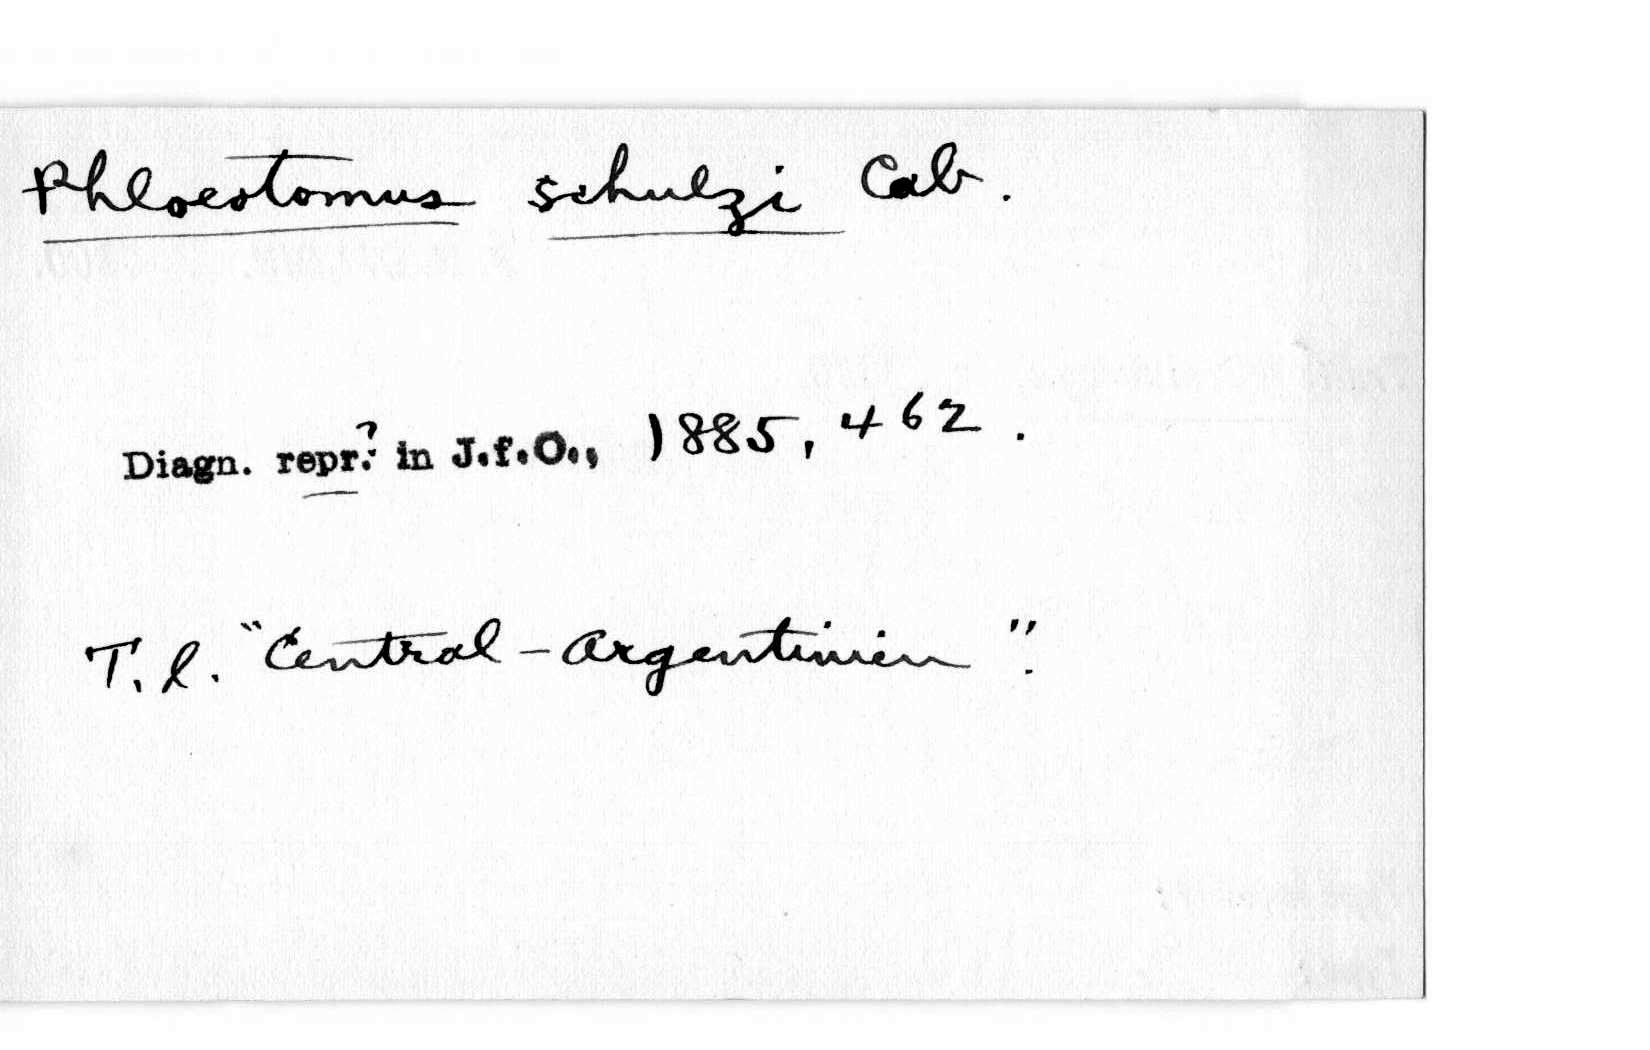 Phloeotomus schulzi Cab.
Diagn. repr.? in J.f.O., 1885, 462.
T.l. "Central-Argentinien".